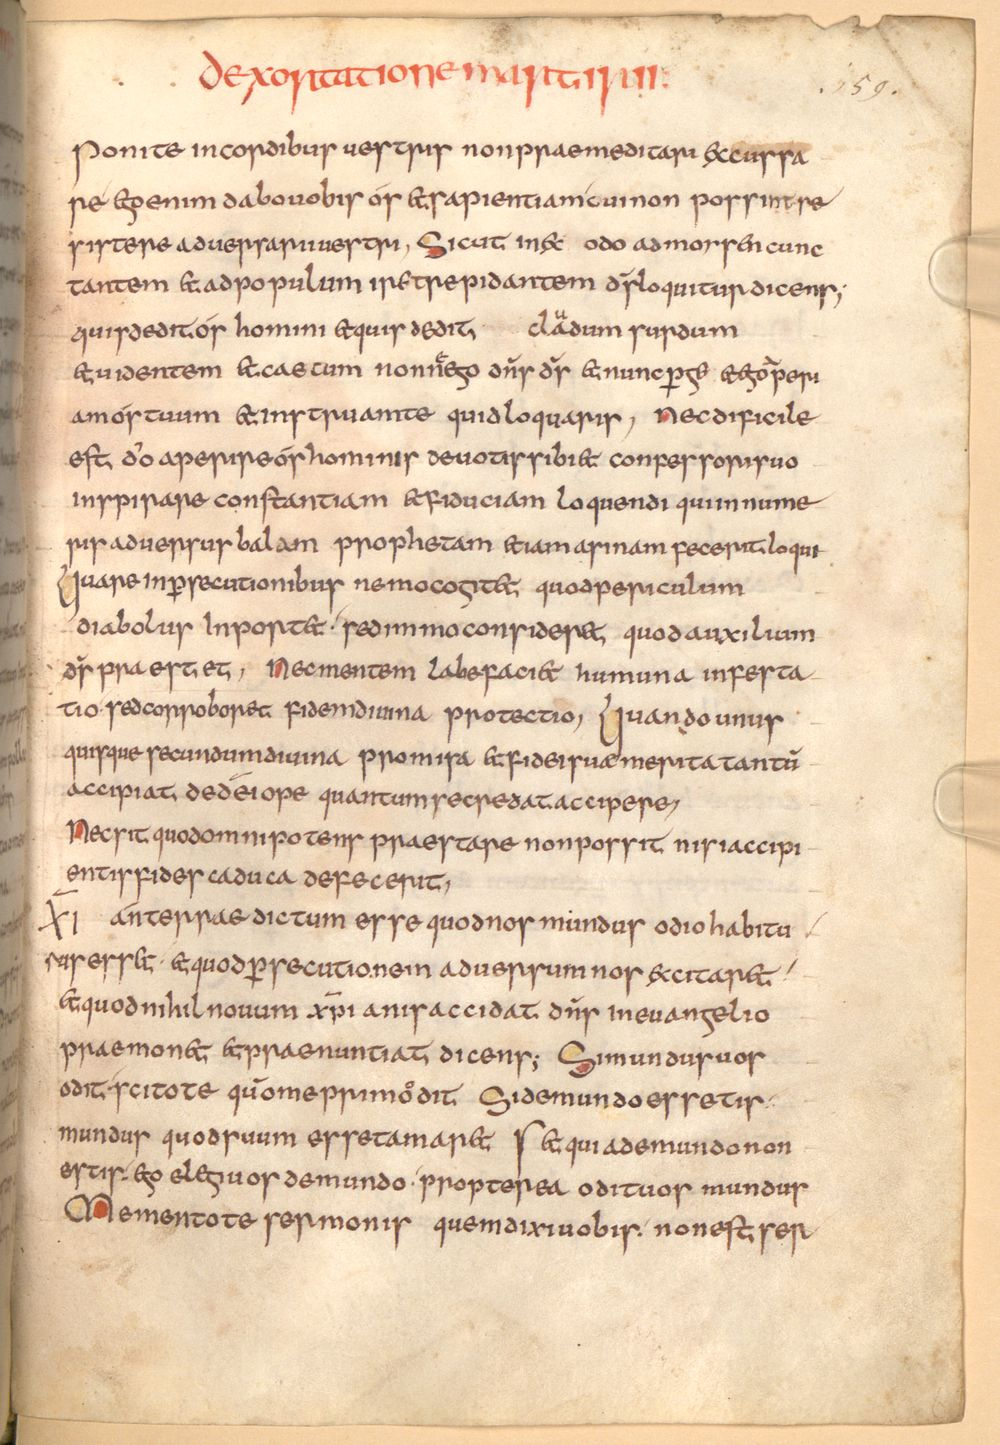 de xortatione martirii:
.159.
Ponite in cordibus vestris non praemeditari & cussa
re ego enim dabo vobis os & sapientiam cui non possint re
sistere adversarii vestri, Sicut in & odo ad morsen cunc
tantem & ad populum ire trepidantem ds loquitur dicens;
quis dedit os homini & quis dedit cludum surdum
& videntem & caecum non ego dns ds & nunc perge & ego aperi
am os tuum & instruam te quid loquaris, Nec dificile
est do aperire os hominis devoti sibi & confessori suo
inspirare constantiam & fiduciam loquendi qui in nume
ris adversus balam prophetam etiam asinam fecerit loqui
Quare in persecutionibus nemo cogit& quod periculum
diabolus inport& · sed immo consider& quod auxilium
ds praestet, Nec mentem labefaci& humana infesta
tio sed corroboret fidem divina protectio, Quando unus
quisque secundum divina promisa & fidei suae merita tantu
accipiat de dei ope quantum se credat accipere,
Nec sit quod omnipotens praestare non possit nisi accipi
entis fides caduca defecerit,
XI an terrae dictum esse quod nos mundus odio habitu
rus ess& · & quod persecutionem adversum nos &citar&
& quod nihil novum xpianis accidat dns in evangelio
praemon& & praenuntiat dicens; Si mundus vos
odit · scitote quo me primo odit Si de mundo essetis ·
mundus quod suum esset amar& S& quia de mundo non
estis · ego elegi vos de mundo · propterea odit vos mundus
Mementote sermonis quem dixi vobis · non est ser